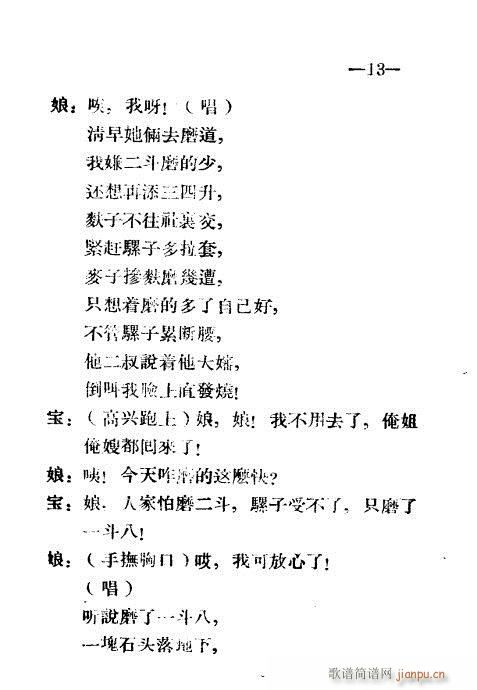 —13—
娘：咳，我呀！（唱）
清早她倆去磨道，
我嫌二斗磨的少，
还想再添三四升，
麩子不往社裏交，
緊赶騾子多拉套，
麥子摻麩磨幾遭，
只想着磨的多了自己好，
不管騾子累断腰，
他二叔說着他大嬸，
倒叫我臉上直發燒！
宝：（高兴跑上）娘，娘！我不用去了，俺姐
俺嫂都囘來了！
娘：咦！今天咋磨的这麽快？
宝：娘，人家怕磨二斗，騾子受不了，只磨了
一斗八！
娘：（手撫胸口）哎，我可放心了！
（唱）
听說磨了一斗八，
一塊石头落地下，
歌谱简谱网
jianpu.cn